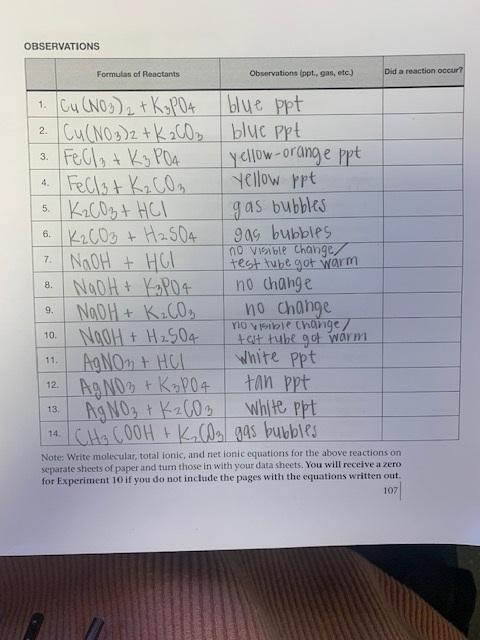 OBSERVATIONS
Formulas of Reactants Observations (ppt., gas, etc.) Did a reaction occur?
1. Cu(NO3)2 + K3PO4 blue ppt
2. Cu(NO3)2 + K2CO3 blue ppt
3. FeCl3 + K3PO4 yellow-orange ppt
4. FeCl3 + K2CO3 yellow ppt
5. K2CO3 + HCl gas bubbles
6. K2CO3 + H2SO4 gas bubbles
7. NaOH + HCl no visible change/
test tube got warm
8. NaOH + K3PO4 no change
9. NaOH + K2CO3 no change
10. NaOH + H2SO4 no visible change/
test tube got warm
11. AgNO3 + HCl white ppt
12. AgNO3 + K3PO4 tan ppt
13. AgNO3 + K2CO3 white ppt
14. CH3COOH + K2CO3 gas bubbles
Note: Write molecular, total ionic, and net ionic equations for the above reactions on
separate sheets of paper and turn those in with your data sheets. You will receive a zero
for Experiment 10 if you do not include the pages with the equations written out.
107